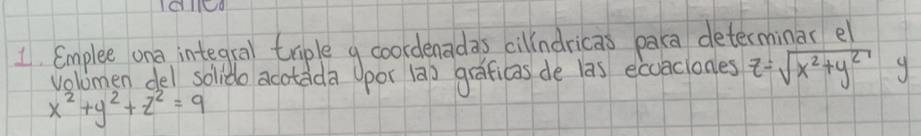 1. Emplee una integral triple y coordenadas cilíndricas para determinar el
volumen del solido acotada por las gráficas de las ecuaciones z=√x²+y² y
x²+y²+z²=9